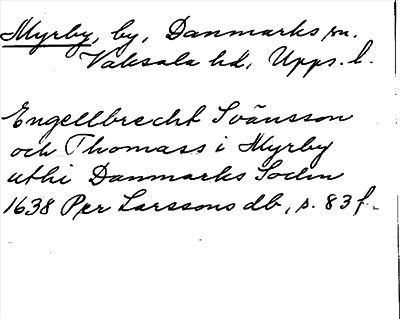 Myrby, by, Danmarks sn.
Vaksala hd, Upps. l.
Engellbrecht Svänsson
och Thomass i Myrby
uthi Danmarks Sochn
1638 Per Larssons db, s. 83 f.